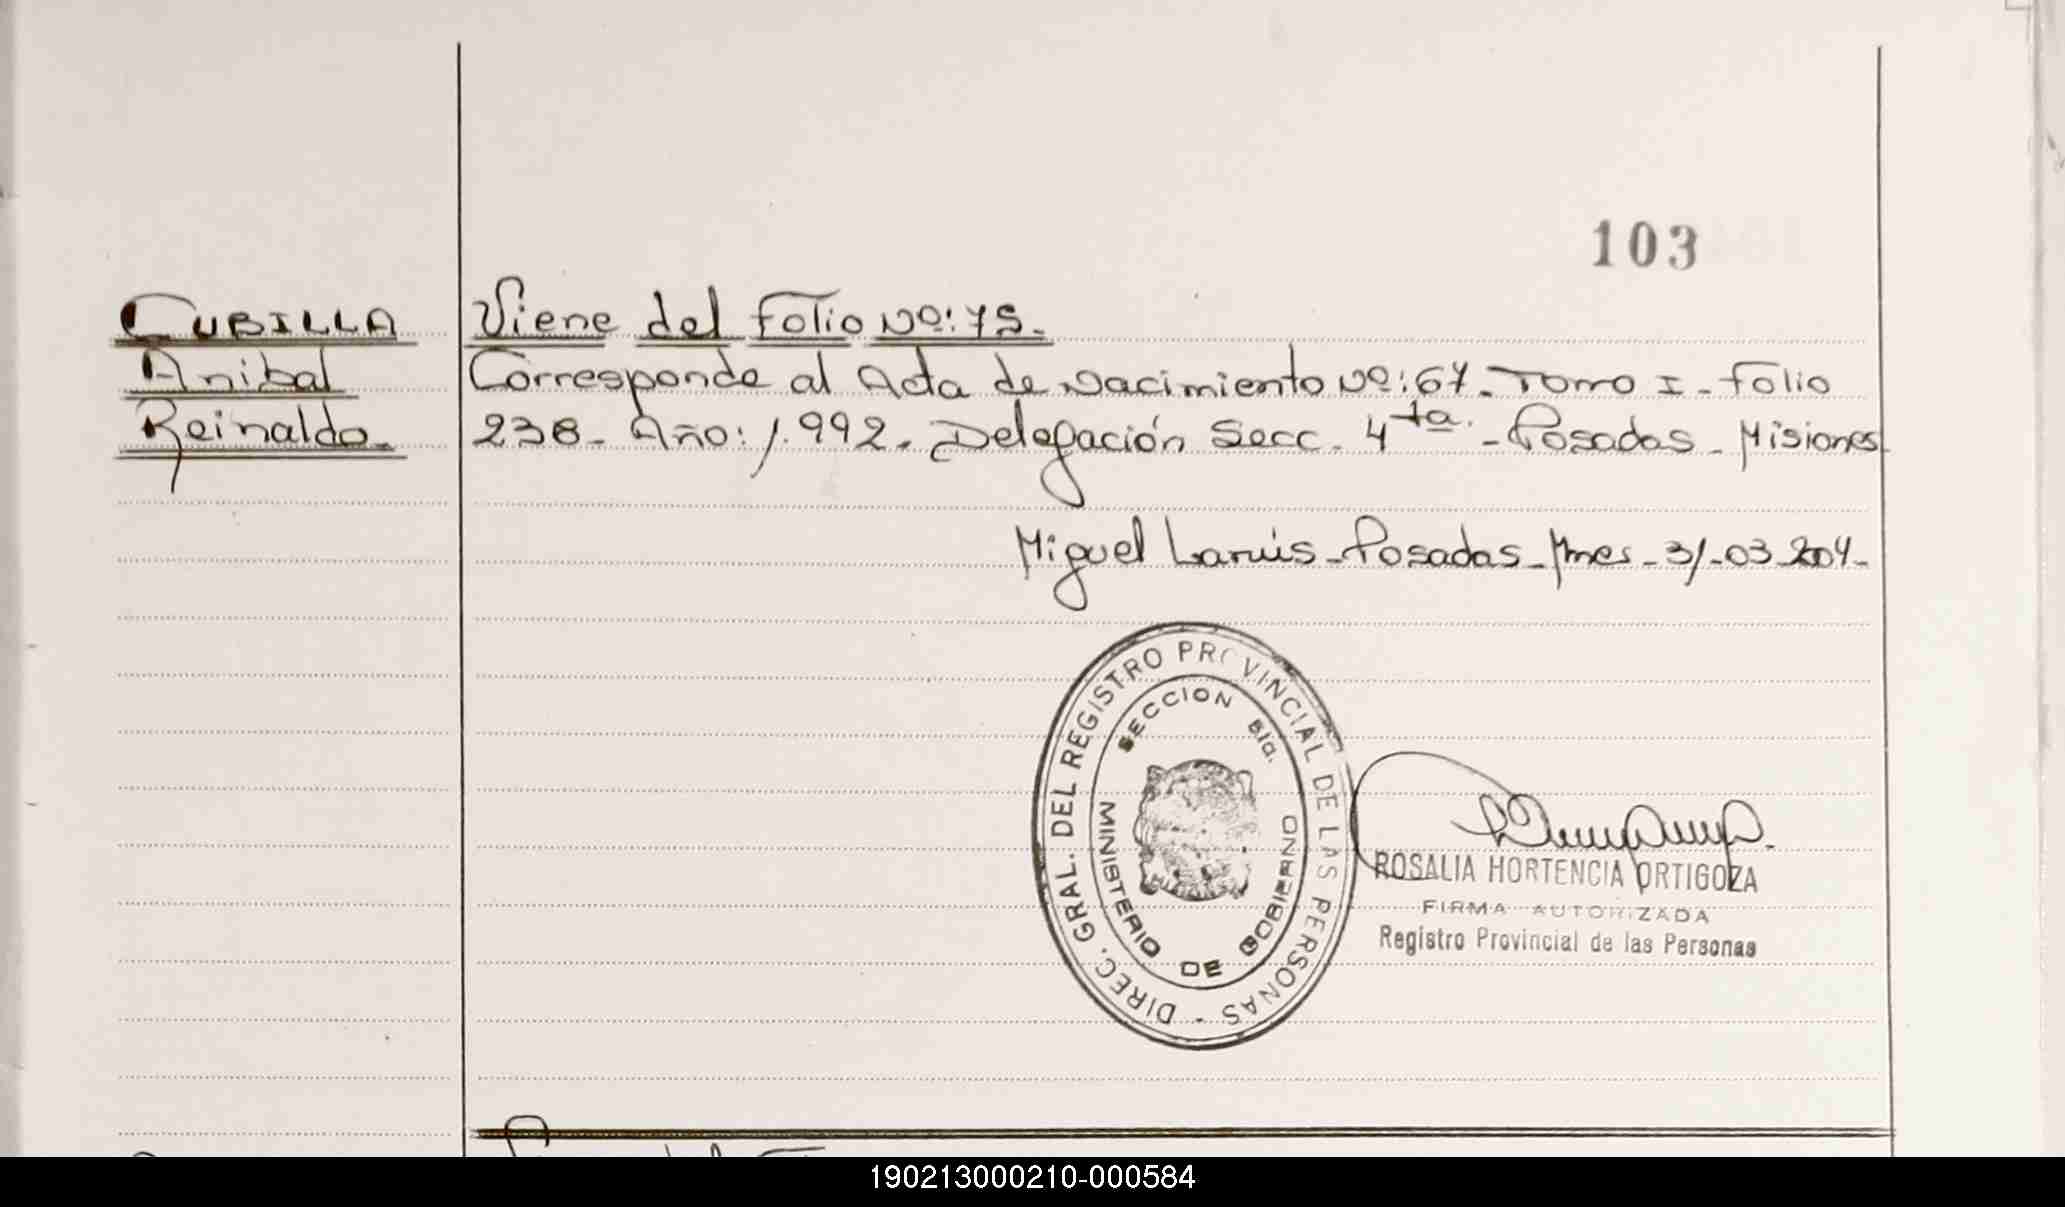 103
CUBILLA
Anibal
Reinaldo.
Viene del Folio Nº: 75.
Corresponde al Acta de Nacimiento Nº: 67. Tomo I - Folio
238 - Año: 1.992. Delegación Secc. 4ta. - Posadas - Misiones
Miguel Larus - Posadas - Mnes - 31-03-2004-
DIREC. GRAL. DEL REGISTRO PROVINCIAL DE LAS PERSONAS -
SECCION Bia.
MINISTERIO DE GOBIERNO
ROSALIA HORTENCIA ORTIGOZA
FIRMA AUTORIZADA
Registro Provincial de las Personas
190213000210-000584